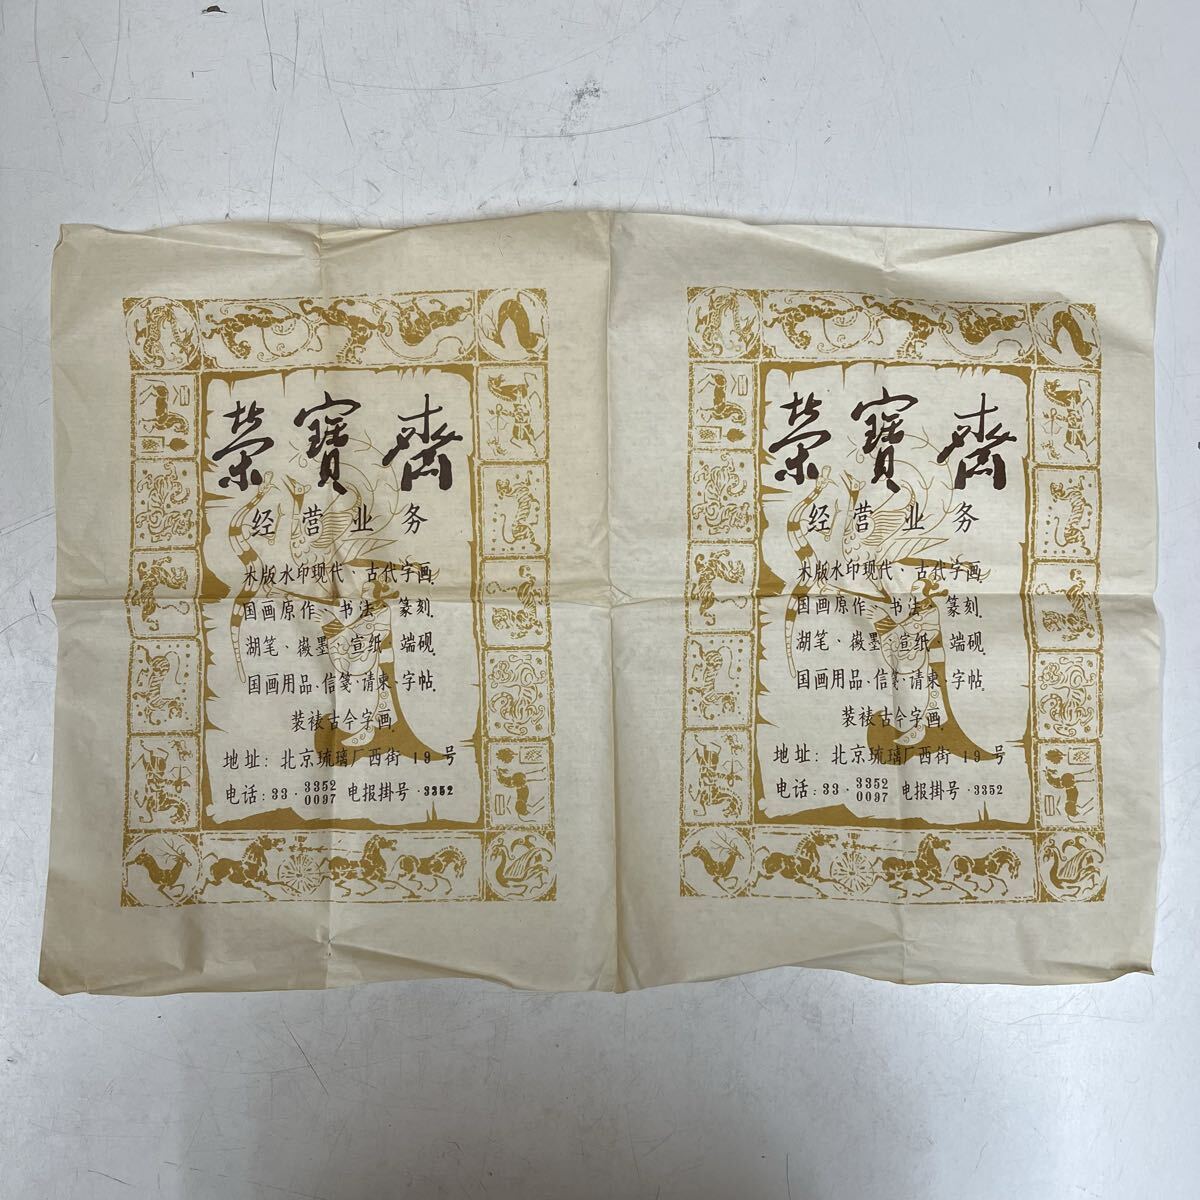 荣寳齋
经营业务
木版水印现代、古代字画.
国画原作、书法、篆刻.
湖笔、徽墨、宣纸、端砚.
国画用品、信笺、请柬、字帖.
装裱古今字画.
地址：北京琉璃厂西街19号
电话：33·3352 0097 电报掛号·3352
荣寳齋
经营业务
木版水印现代、古代字画.
国画原作、书法、篆刻.
湖笔、徽墨、宣纸、端砚.
国画用品、信笺、请柬、字帖.
装裱古今字画.
地址：北京琉璃厂西街19号
电话：33·3352 0097 电报掛号·3352